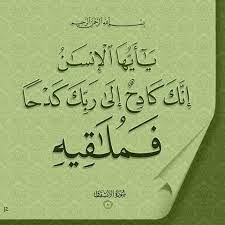 بسم الله الرحمن الرحيم
يَٰٓأَيُّهَا ٱلْإِنسَٰنُ
إِنَّكَ كَادِحٌ إِلَىٰ رَبِّكَ كَدْحًا
فَمُلَٰقِيهِ
سورة الانشقاق